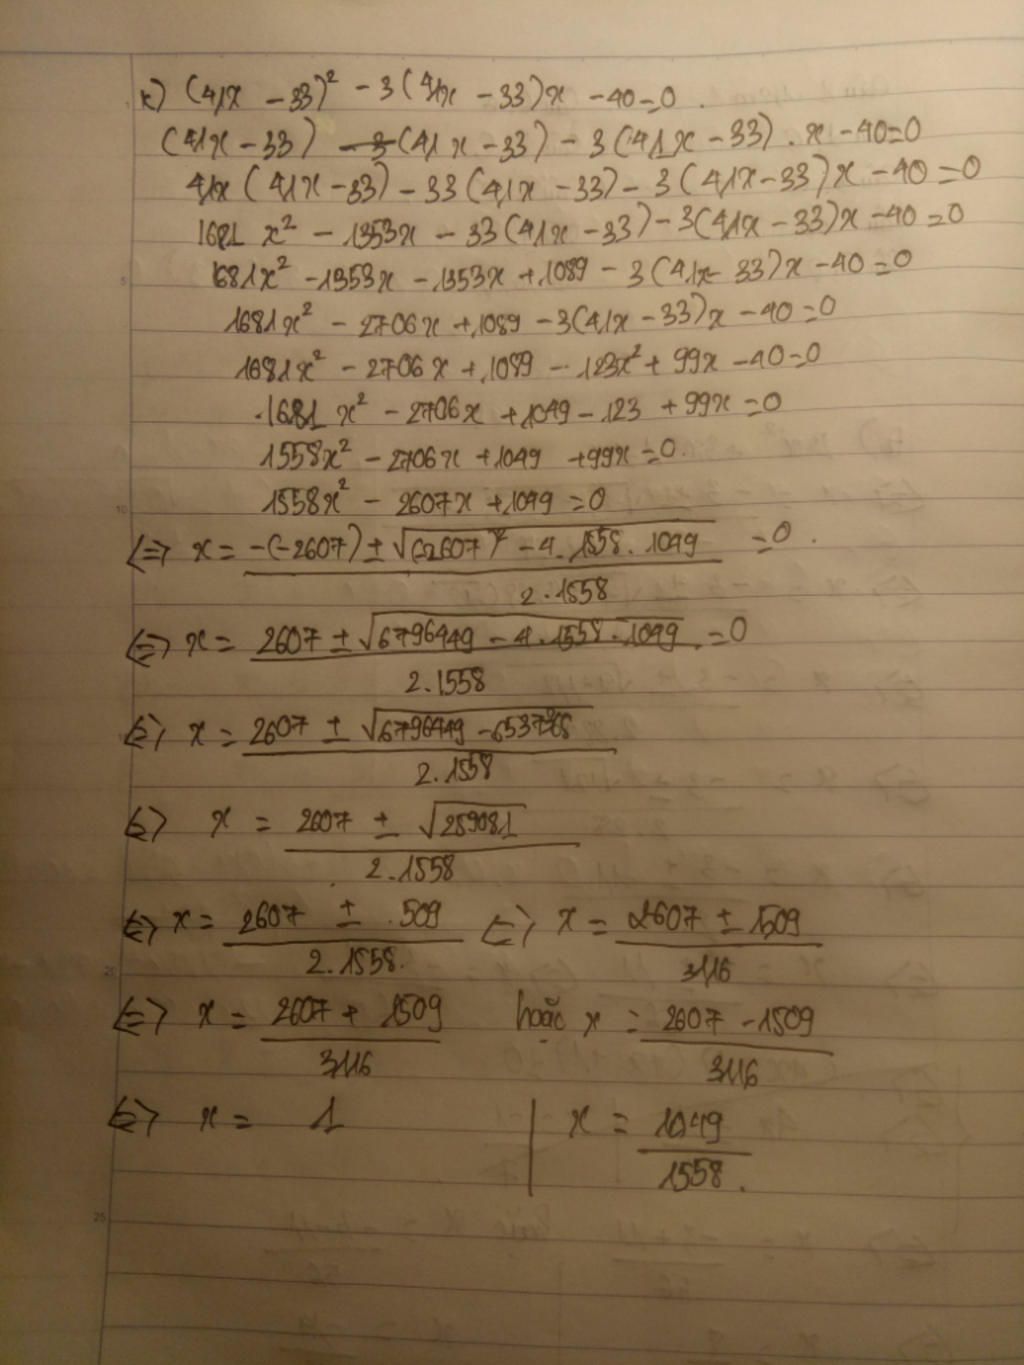 k) (41x - 33)² - 3(41x - 33)x - 40 = 0.
(41x - 33) (41x - 33) - 3(41x - 33).x - 40 = 0
41x (41x - 33) - 33(41x - 33) - 3(41x - 33)x - 40 = 0
1681 x² - 1353x - 33(41x - 33) - 3(41x - 33)x - 40 = 0
1681x² - 1353x - 1353x + 1089 - 3(41x - 33)x - 40 = 0
1681x² - 2706x + 1089 - 3(41x - 33)x - 40 = 0
1681x² - 2706x + 1089 - 123x² + 99x - 40 = 0
1681 x² - 2706x + 1049 - 123 + 99x = 0
1558x² - 2706x + 1049 + 99x = 0.
1558x² - 2607x + 1049 = 0
<=> x = -(-2607) ± √(-2607)² - 4.1558.1049 = 0.
2.1558
<=> x = 2607 ± √6796449 - 4.1558.1049 = 0
2.1558
<=> x = 2607 ± √6796449 -
2.1558
<=> x = 2607 ± √259081
2.1558
<=> x = 2607 ± 509 <=> x = 2607 ± 509
2.1558. 3116
<=> x = 2607 + 509 hoặc x = 2607 - 509
3116 3116
<=> x = 1 | x = 1049
1558.
5
10
20
25